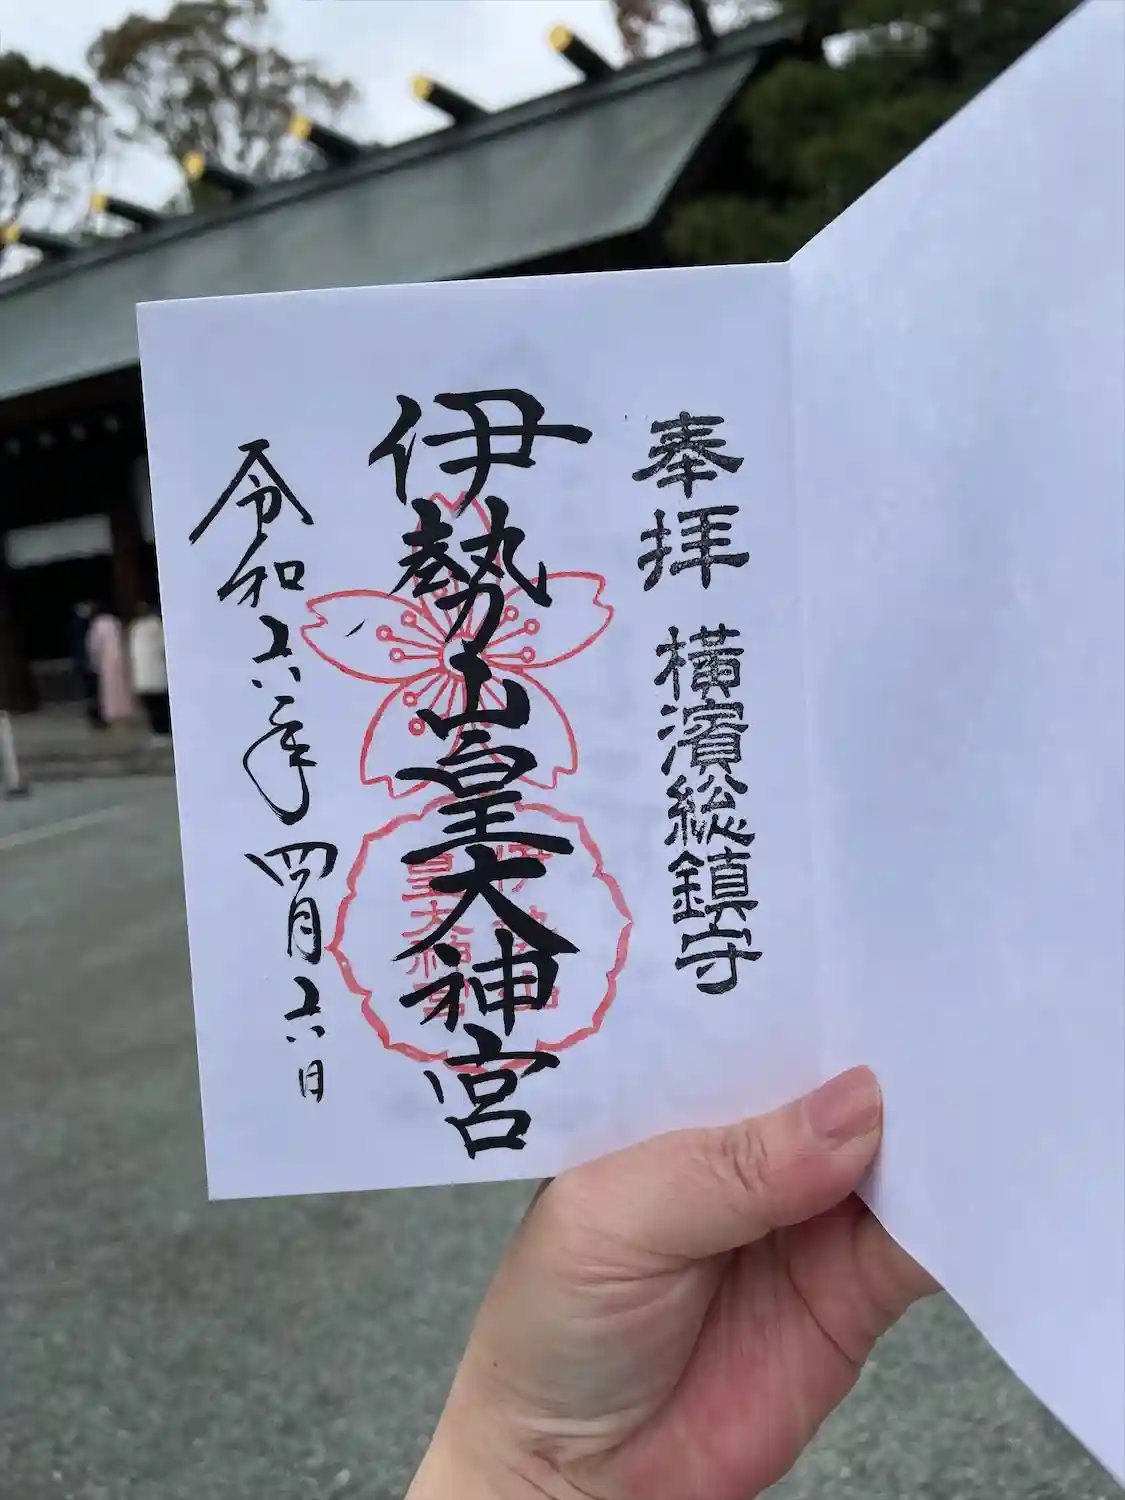 奉拝 横濱総鎮守
伊勢山皇大神宮
伊勢山
皇大神宮
令和六年四月六日